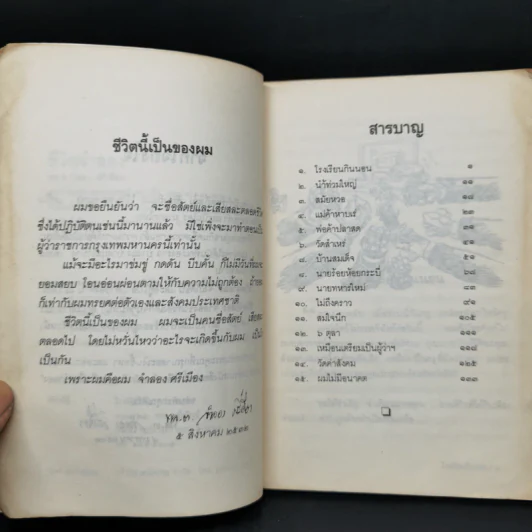 ชีวิตนี้เป็นของผม
ผมขอยืนยันว่า จะซื่อสัตย์และเสียสละตลอดชีวิต
ซึ่งได้ปฏิบัติตนเช่นนี้มานานแล้ว มิใช่เพิ่งจะมาทำตอนเป็น
ผู้ว่าราชการกรุงเทพมหานครนี้เท่านั้น
แม้จะมีอะไรมาข่มขู่ กดดัน บีบคั้น ก็ไม่มีวันที่
ยอมสยบ โอนอ่อนผ่อนตามให้กับความไม่ถูกต้อง
ก็เท่ากับผมทรยศต่อตัวเองและสังคมประเทศชาติ
ชีวิตนี้เป็นของผม ผมจะเป็นคนซื่อสัตย์
ตลอดไป โดยไม่หวั่นไหวว่าอะไรจะเกิดขึ้นกับผม
เป็นกัน
เพราะผมคือผม จำลอง ศรีเมือง
๕ สิงหาคม ๒๕๓๒
สารบาญ
๑. โรงเรียนกินนอน ๑
๒. น้ำท่วมใหญ่ ๑๑
๓. สมัยหวอ
๔. แม่ค้าหาบเร่
๕. พ่อค้าปลาสด
๖. วัดสำเหร่
๗. บ้านสมเด็จ
๘. นายร้อยห้อยกระบี่
๙. นายทหารใหม่
๑๐. ไม่ถึงคราว
๑๑. สมใจนึก ๑๐๕
๑๒. ๖ ตุลา
๑๓. เหมือนเตรียมเป็นผู้ว่าฯ ๑๑๘
๑๔. วัดค่าสังคม ๑๒๕
๑๕. ผมไม่มีอนาคต ๑๓๓